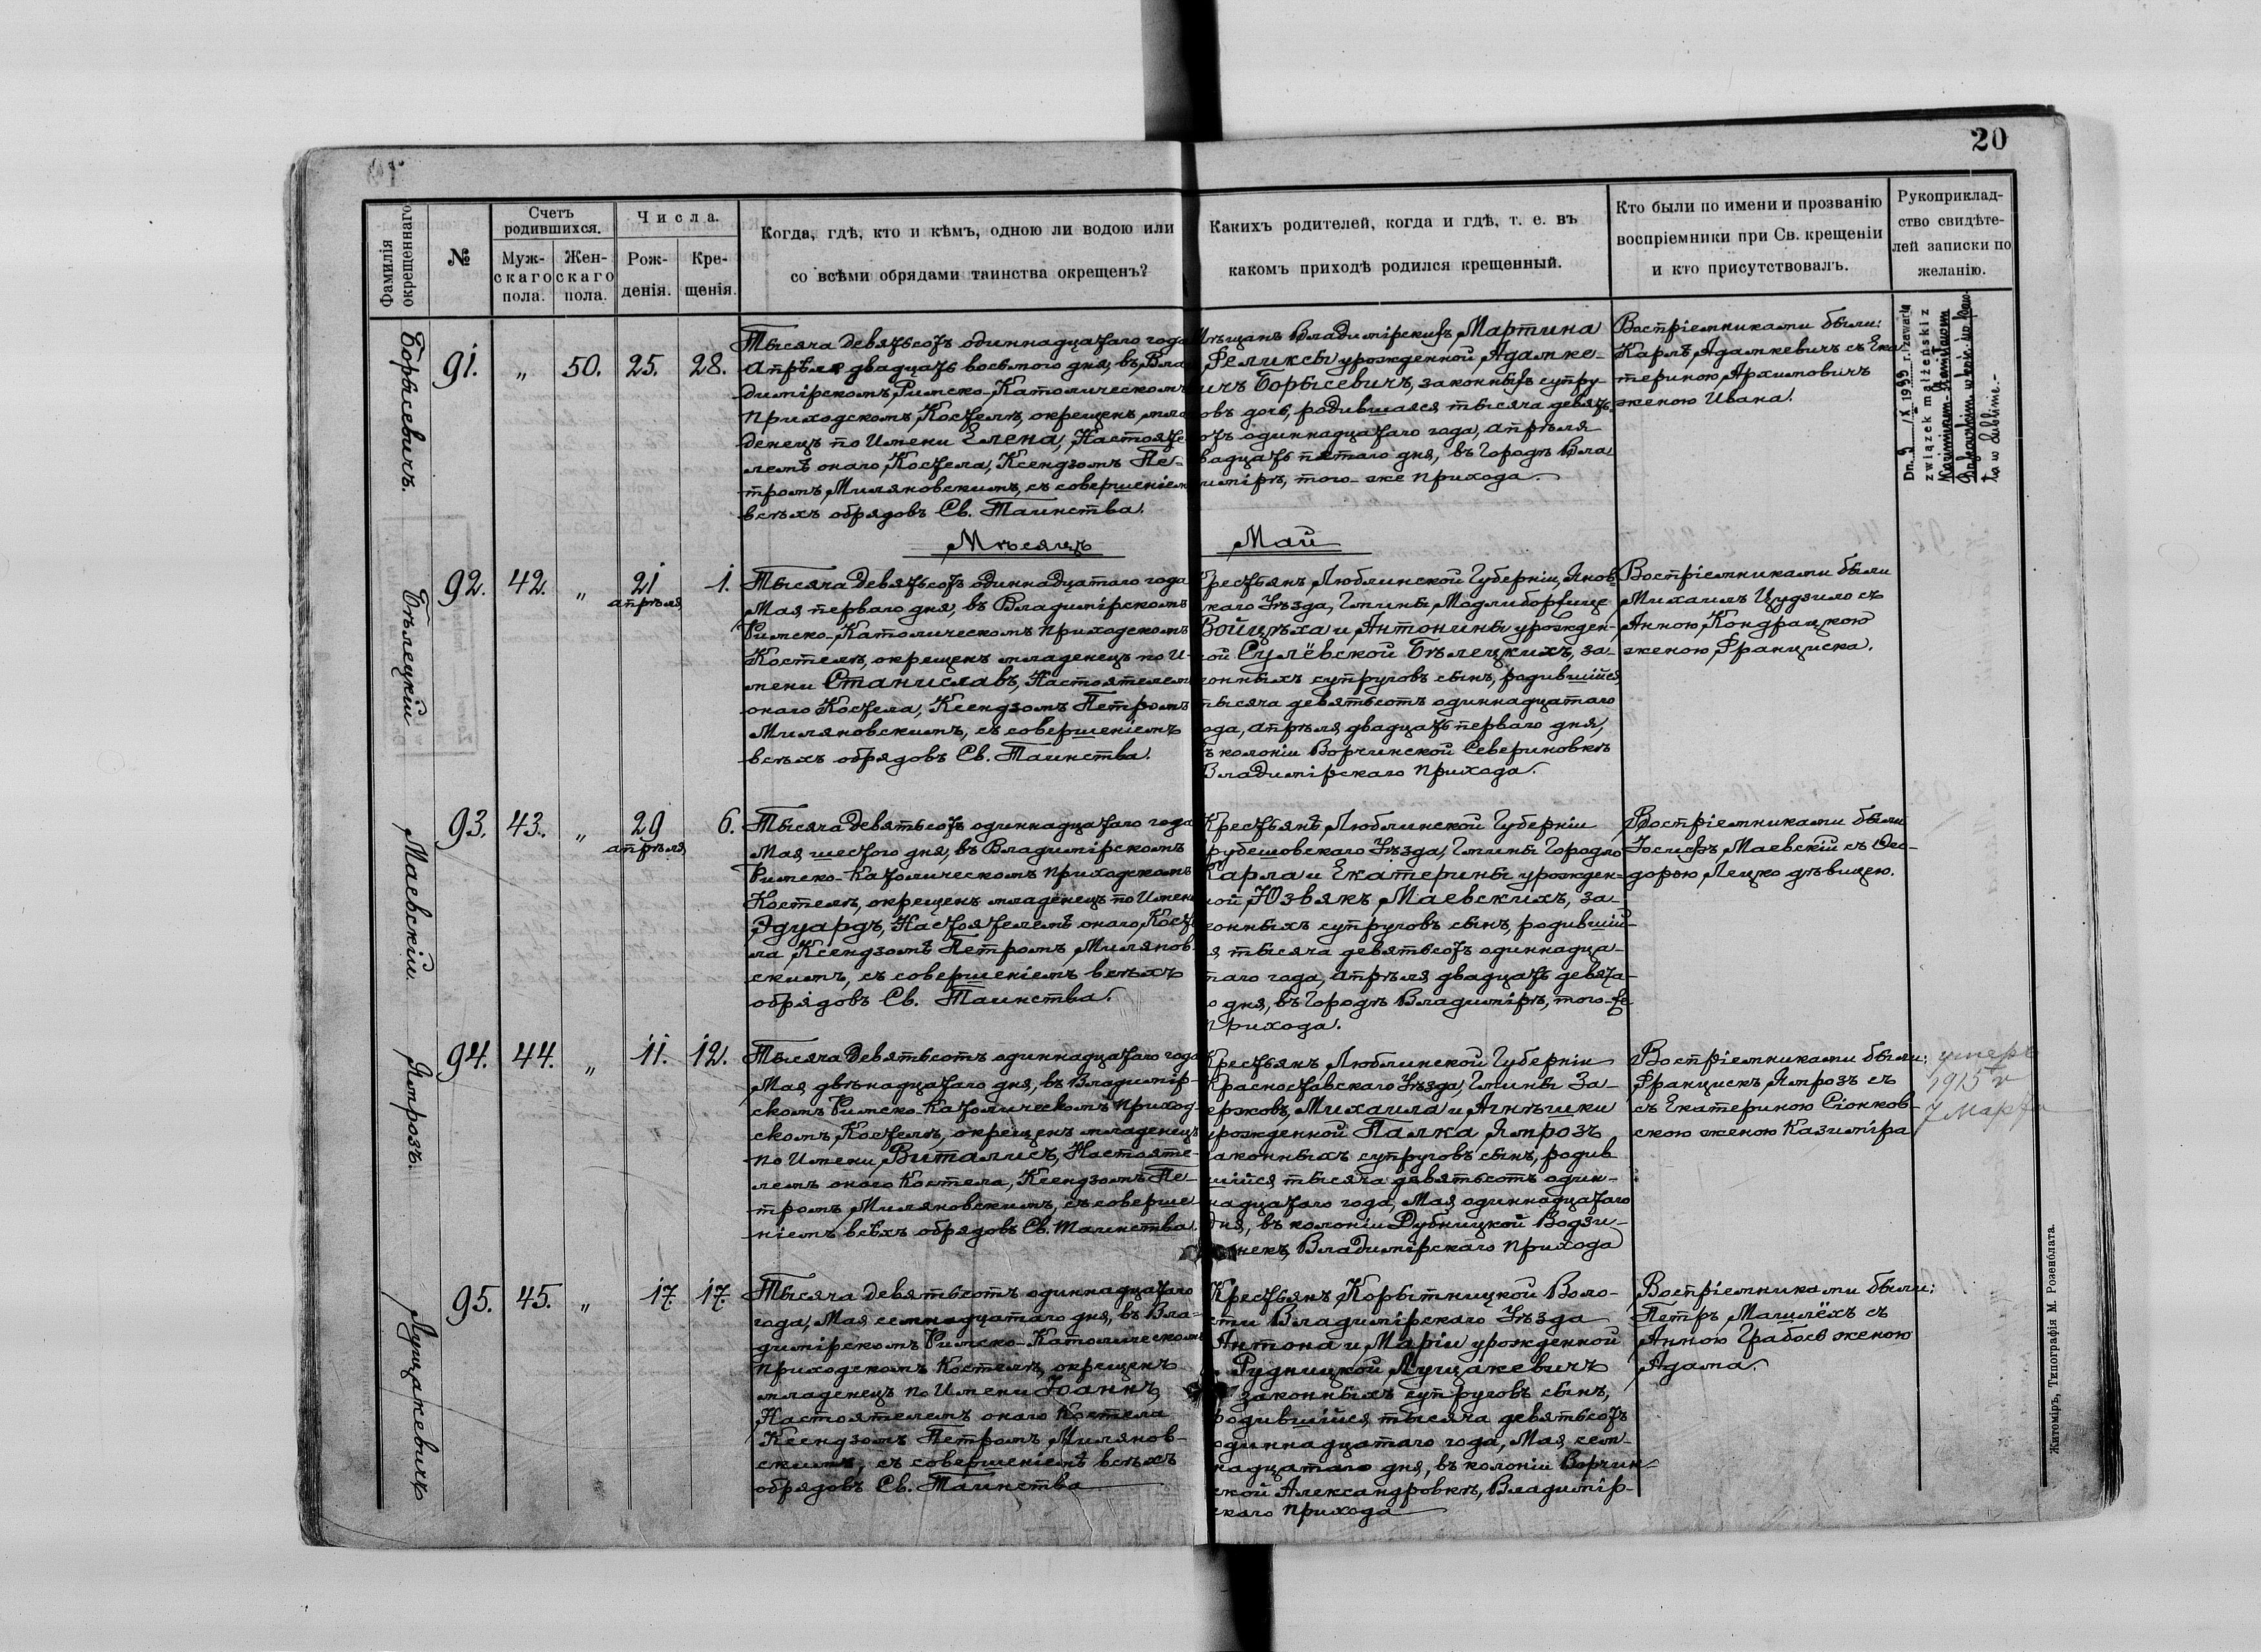 20
Фамилія окрещеннаго
№
Счетъ родившихся.
Муж-скаго пола.
Жен-скаго пола.
Числа.
Рож-денія.
Кре-щенія.
Когда, гдѣ, кто и кѣмъ, одною ли водою или
со всѣми обрядами таинства окрещенъ?
Каких​ъ родителей, когда и гдѣ, т. е. въ
какомъ приходѣ родился крещенный.
Кто были по имени и прозванію
воспріемники при Св. крещеніи
и кто присутствовалъ.
Рукоприклад-
ство свидѣте-
лей записки по
желанію.
Борысевичъ.
91. „ 50. 25. 28.
Тысяча девятьсотъ одиннадцатаго года
Апрѣля двадцать восьмого дня, въ Вла
димірскомъ Римско-Католическомъ
Приходскомъ Костелѣ, окрещенъ мла
денецъ по Имени Елена, Настояте
лемъ онаго Костела, Ксендзомъ Пе-
тромъ Миляновскимъ, съ совершеніем
всѣхъ обрядовъ Св. Таинства.
Мѣщанъ Владимірскихъ Мартина
Феликсы урожденной Адамке-
ичъ Борысевичъ, законныхъ супру-
овъ дочь, родившаяся тысяча девять
отъ одиннадцатаго года, Апрѣля
вадцать пятаго дня, въ Городѣ Вла
имірѣ, того-же прихода.
Воспріемниками были:
Карлъ Адамкевичъ съ Ека
териною Архимовичъ
женою Ивана.
Dn. 9 /IX 1939 r. zawarła
związek małżeński z
w Lublinie.-
Мѣсяцъ Май
Бѣлецкій
92. 42. „ 21 апрѣля 1.
Тысяча девятьсотъ одиннадцатаго года
Мая перваго дня, въ Владимірскомъ
Римско-Католическомъ приходскомъ
Костелѣ, окрещенъ младенецъ по И-
мени Станиславъ, Настоятелем
онаго Костела, Ксендзомъ Петромъ
Миляновскимъ, съ совершеніемъ
всѣхъ обрядовъ Св. Таинства.
Крестьянъ Люблинской Губерніи, Янов
скаго Уѣзда, Гмины Модлиборжице
Войцѣха и Антонины урожден-
ной Сулёвской Бѣлецкихъ, за-
онныхъ супруговъ сынъ, родившійся
тысяча девятьсотъ одиннадцатаго
ода, Апрѣля двадцать перваго дня,
ъ колоніи Ворчинской Севериновкѣ
Владимірскаго прихода.
Воспріемниками были
Михаилъ Цудзило съ
Анною Кондрацкою
женою Франциска.
Маевскій.
93. 43. „ 29 апрѣля 6.
Тысяча девятьсотъ одиннадцатаго года
Мая шестого дня, въ Владимірскомъ
Римско-Католическомъ приходскомъ
Костелѣ, окрещенъ младенецъ по Имени
Эдуардъ, Настоятелемъ онаго Косте
ла Ксендзомъ Петромъ Милянов-
скимъ, съ совершеніемъ всѣхъ
обрядовъ Св. Таинства.
Крестьянъ Люблинской Губерніи
рубешовскаго Уѣзда, Гмины Городло
Карла и Екатерины урожден-
ной Юзвякъ Маевскихъ, за
конныхъ супруговъ сынъ, родивший-
я тысяча девятьсотъ одиннадца-
таго года, Апрѣля двадцать девята-
о дня, въ Городѣ Владимірѣ, того-же
прихода.
Воспріемниками были
Іосифъ Маевскій съ Ѳео-
дорою Лецко дѣвицею.
Ямрозъ.
94. 44. „ 11. 12.
Тысяча девятьсотъ одиннадцатаго года
Мая двѣнадцатаго дня, въ Владимір-
скомъ Римско-Католическомъ приход-
скомъ Костелѣ, окрещенъ младенецъ
по Имени Виталисъ, Настояте-
лемъ онаго Костела, Ксендзомъ Пе-
тромъ Миляновскимъ, съ соверше
ніемъ всѣхъ обрядовъ Св. Таинства.
Крестьянъ Люблинской Губерніи
Красноставскаго Уѣзда, Гмины За-
ержовъ, Михаила и Агнѣшки
урожденной Палка Ямрозъ
законныхъ супруговъ сынъ, родив
шійся тысяча девятьсотъ один-
надцатаго года, Мая одиннадцатаго
дня, въ колоніи Дубницкой Водзи-
некъ, Владимірскаго прихода
Воспріемниками были:
Францискъ Ямрозъ съ
съ Екатериною Сіонков-
скою женою Казимира
умеръ
1915 г
7 Марта
Лущакевичъ
95. 45. „ 17 17.
Тысяча девятьсотъ одиннадцатаго
года, Мая семнадцатаго дня, въ Вла-
димірскомъ Римско-Католическомъ
приходскомъ Костелѣ, окрещенъ
младенецъ по Имени Іоаннъ,
Настоятелемъ онаго Костела
Ксендзомъ Петромъ Милянов-
скимъ, съ совершеніемъ всѣхъ
обрядовъ Св. Таинства
Крестьянъ Корытницкой Воло-
сти Владимірскаго Уѣзда
Антона и Маріи урожденной
Рудницкой Лущакевичъ
законныхъ супруговъ сынъ,
родившійся тысяча девятьсотъ
одиннадцатаго года, Мая сем-
надцатаго дня, въ колоніи Ворчин-
ской Александровкѣ, Владимір-
скаго прихода
Воспріемниками были:
Петръ Машлёхъ съ
Анною Грабоев женою
Адама.
Житоміръ, Типографія М. Розенблата.